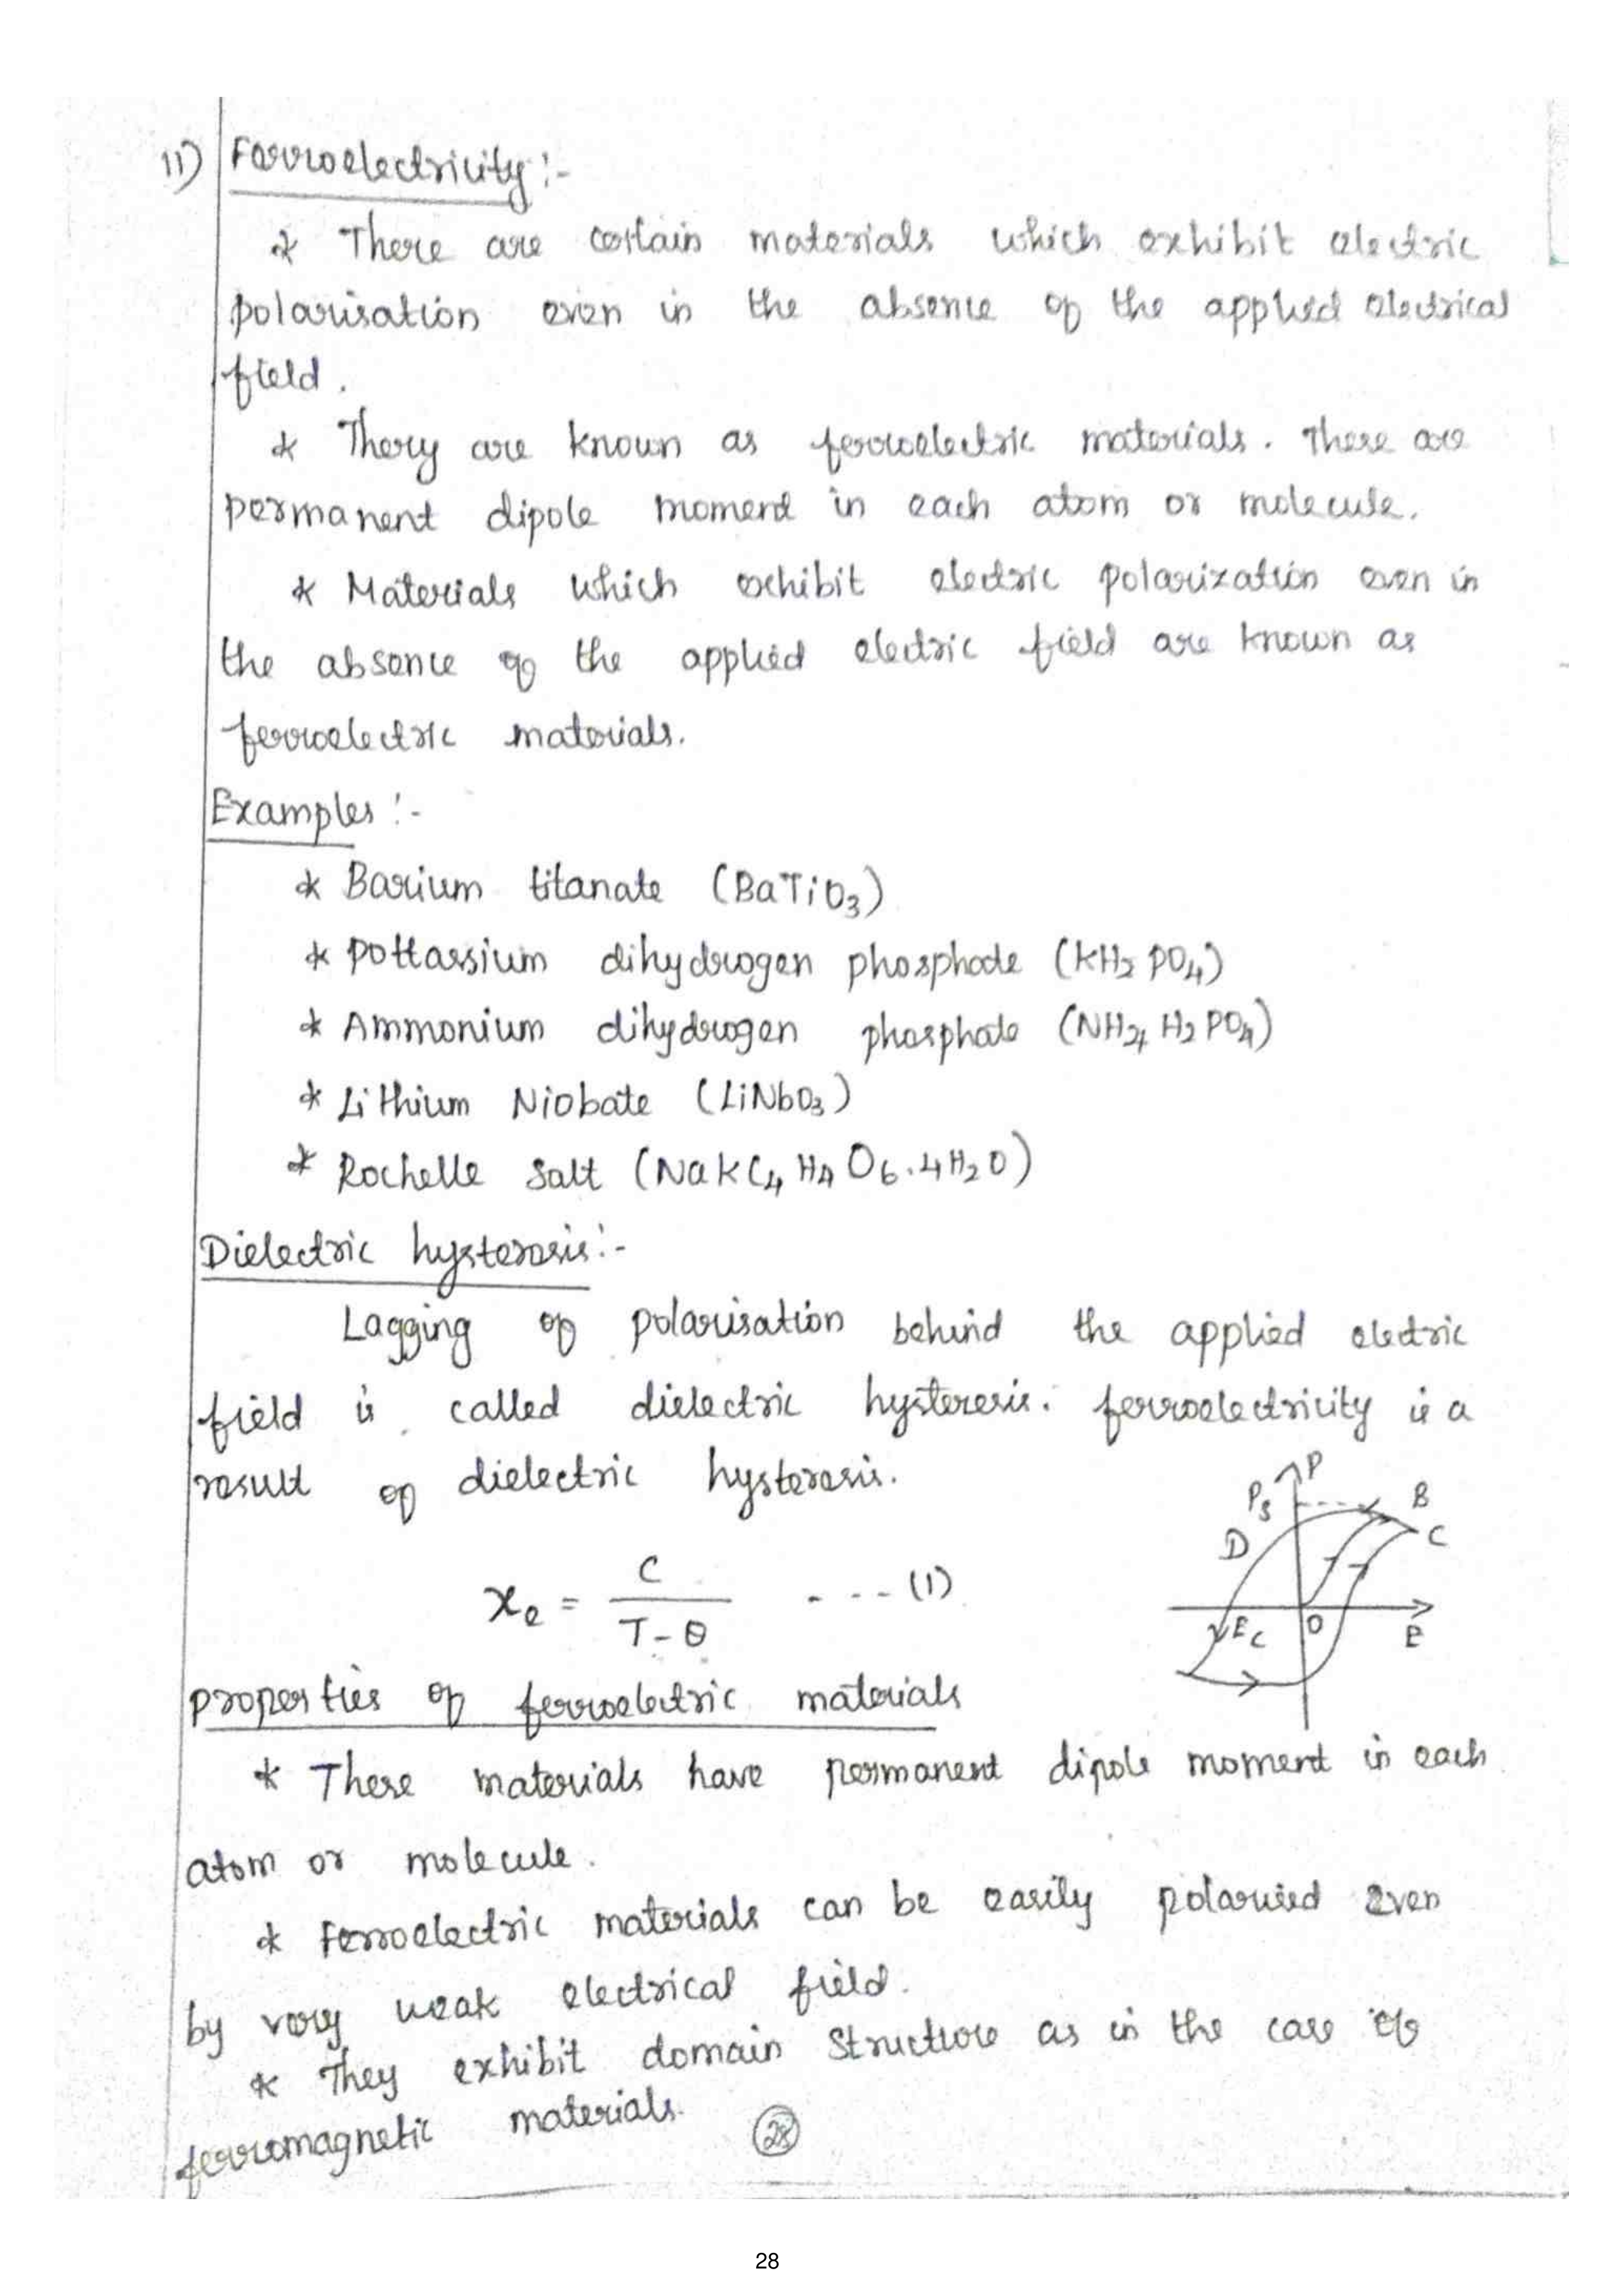 11) Ferroelectricity:-
* There are certain materials which exhibit electric
polarisation even in the absence of the applied electrical
field.
* Thery are known as ferroelectric materials. There are
permanent dipole moment in each atom or molecule.
* Materials which exhibit electric polarization even in
the absence of the applied electric field are known as
ferroelectric materials.
Examples:-
* Barium titanate (BaTiO3)
* Pottassium dihydrogen phosphate (KH2 PO4)
* Ammonium dihydrogen phosphate (NH4 H2 PO4)
* Lithium Niobate (LiNbO3)
* Rochelle Salt (NaKC4 H4 O6.4H2O)
Dielectric hysteresis:-
Lagging of polarisation behind the applied electric
field is called dielectric hysteresis. ferroelectricity is a
result of dielectric hysteresis.
P
Ps
B
D
C
Ec
O
E
χe = C / T - θ ---- (1)
properties of ferroelectric materials
* These materials have permanent dipole moment in each
atom or molecule.
* Ferroelectric materials can be easily polarised even
by very weak electrical field.
* They exhibit domain structure as in the case of
ferromagnetic materials.
28
28